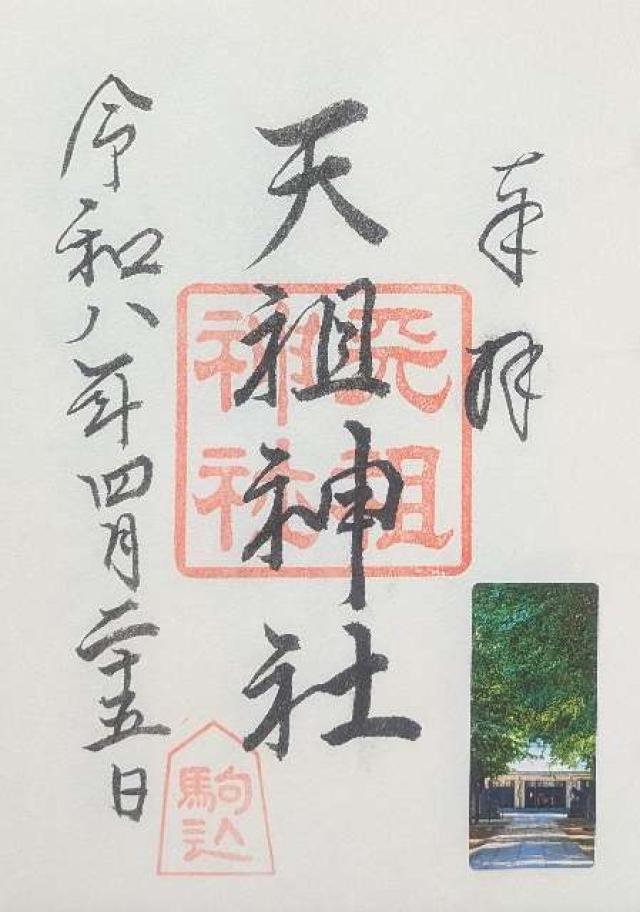 奉拝
天祖神社
天祖
神社
令和八年四月二十五日
駒込